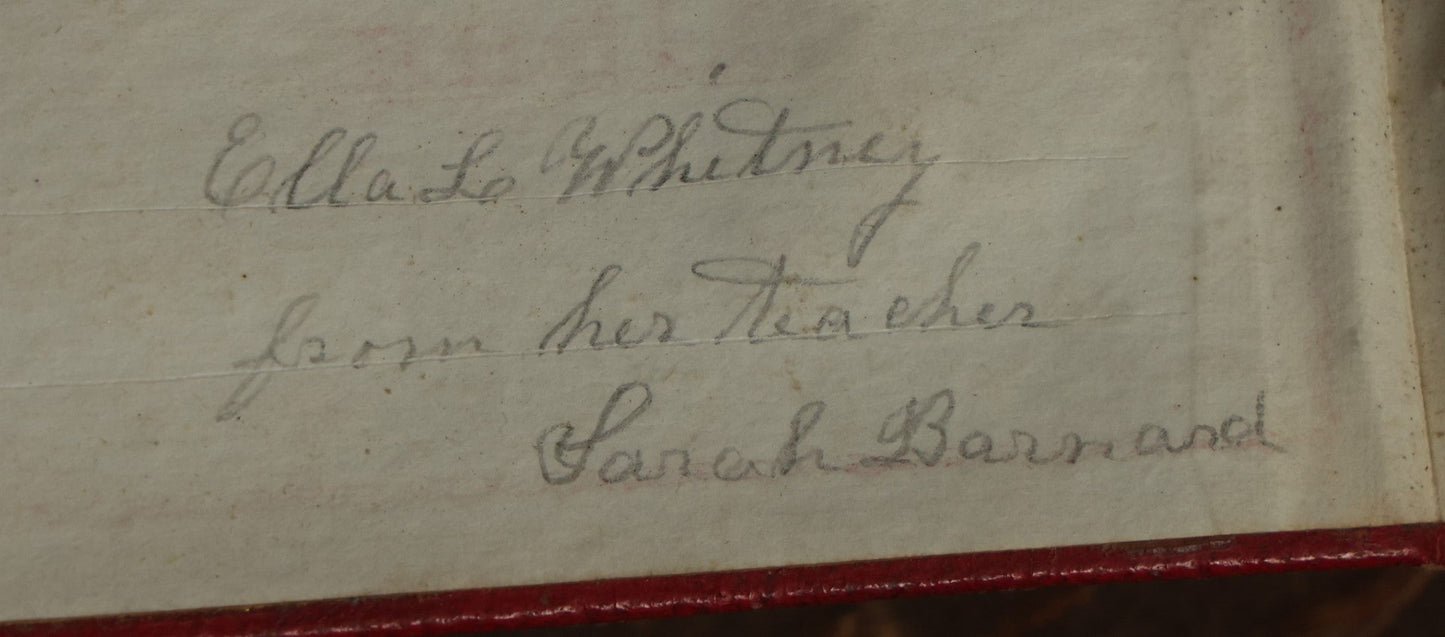 Ella L. Whitney
from her teacher
Sarah Barnard